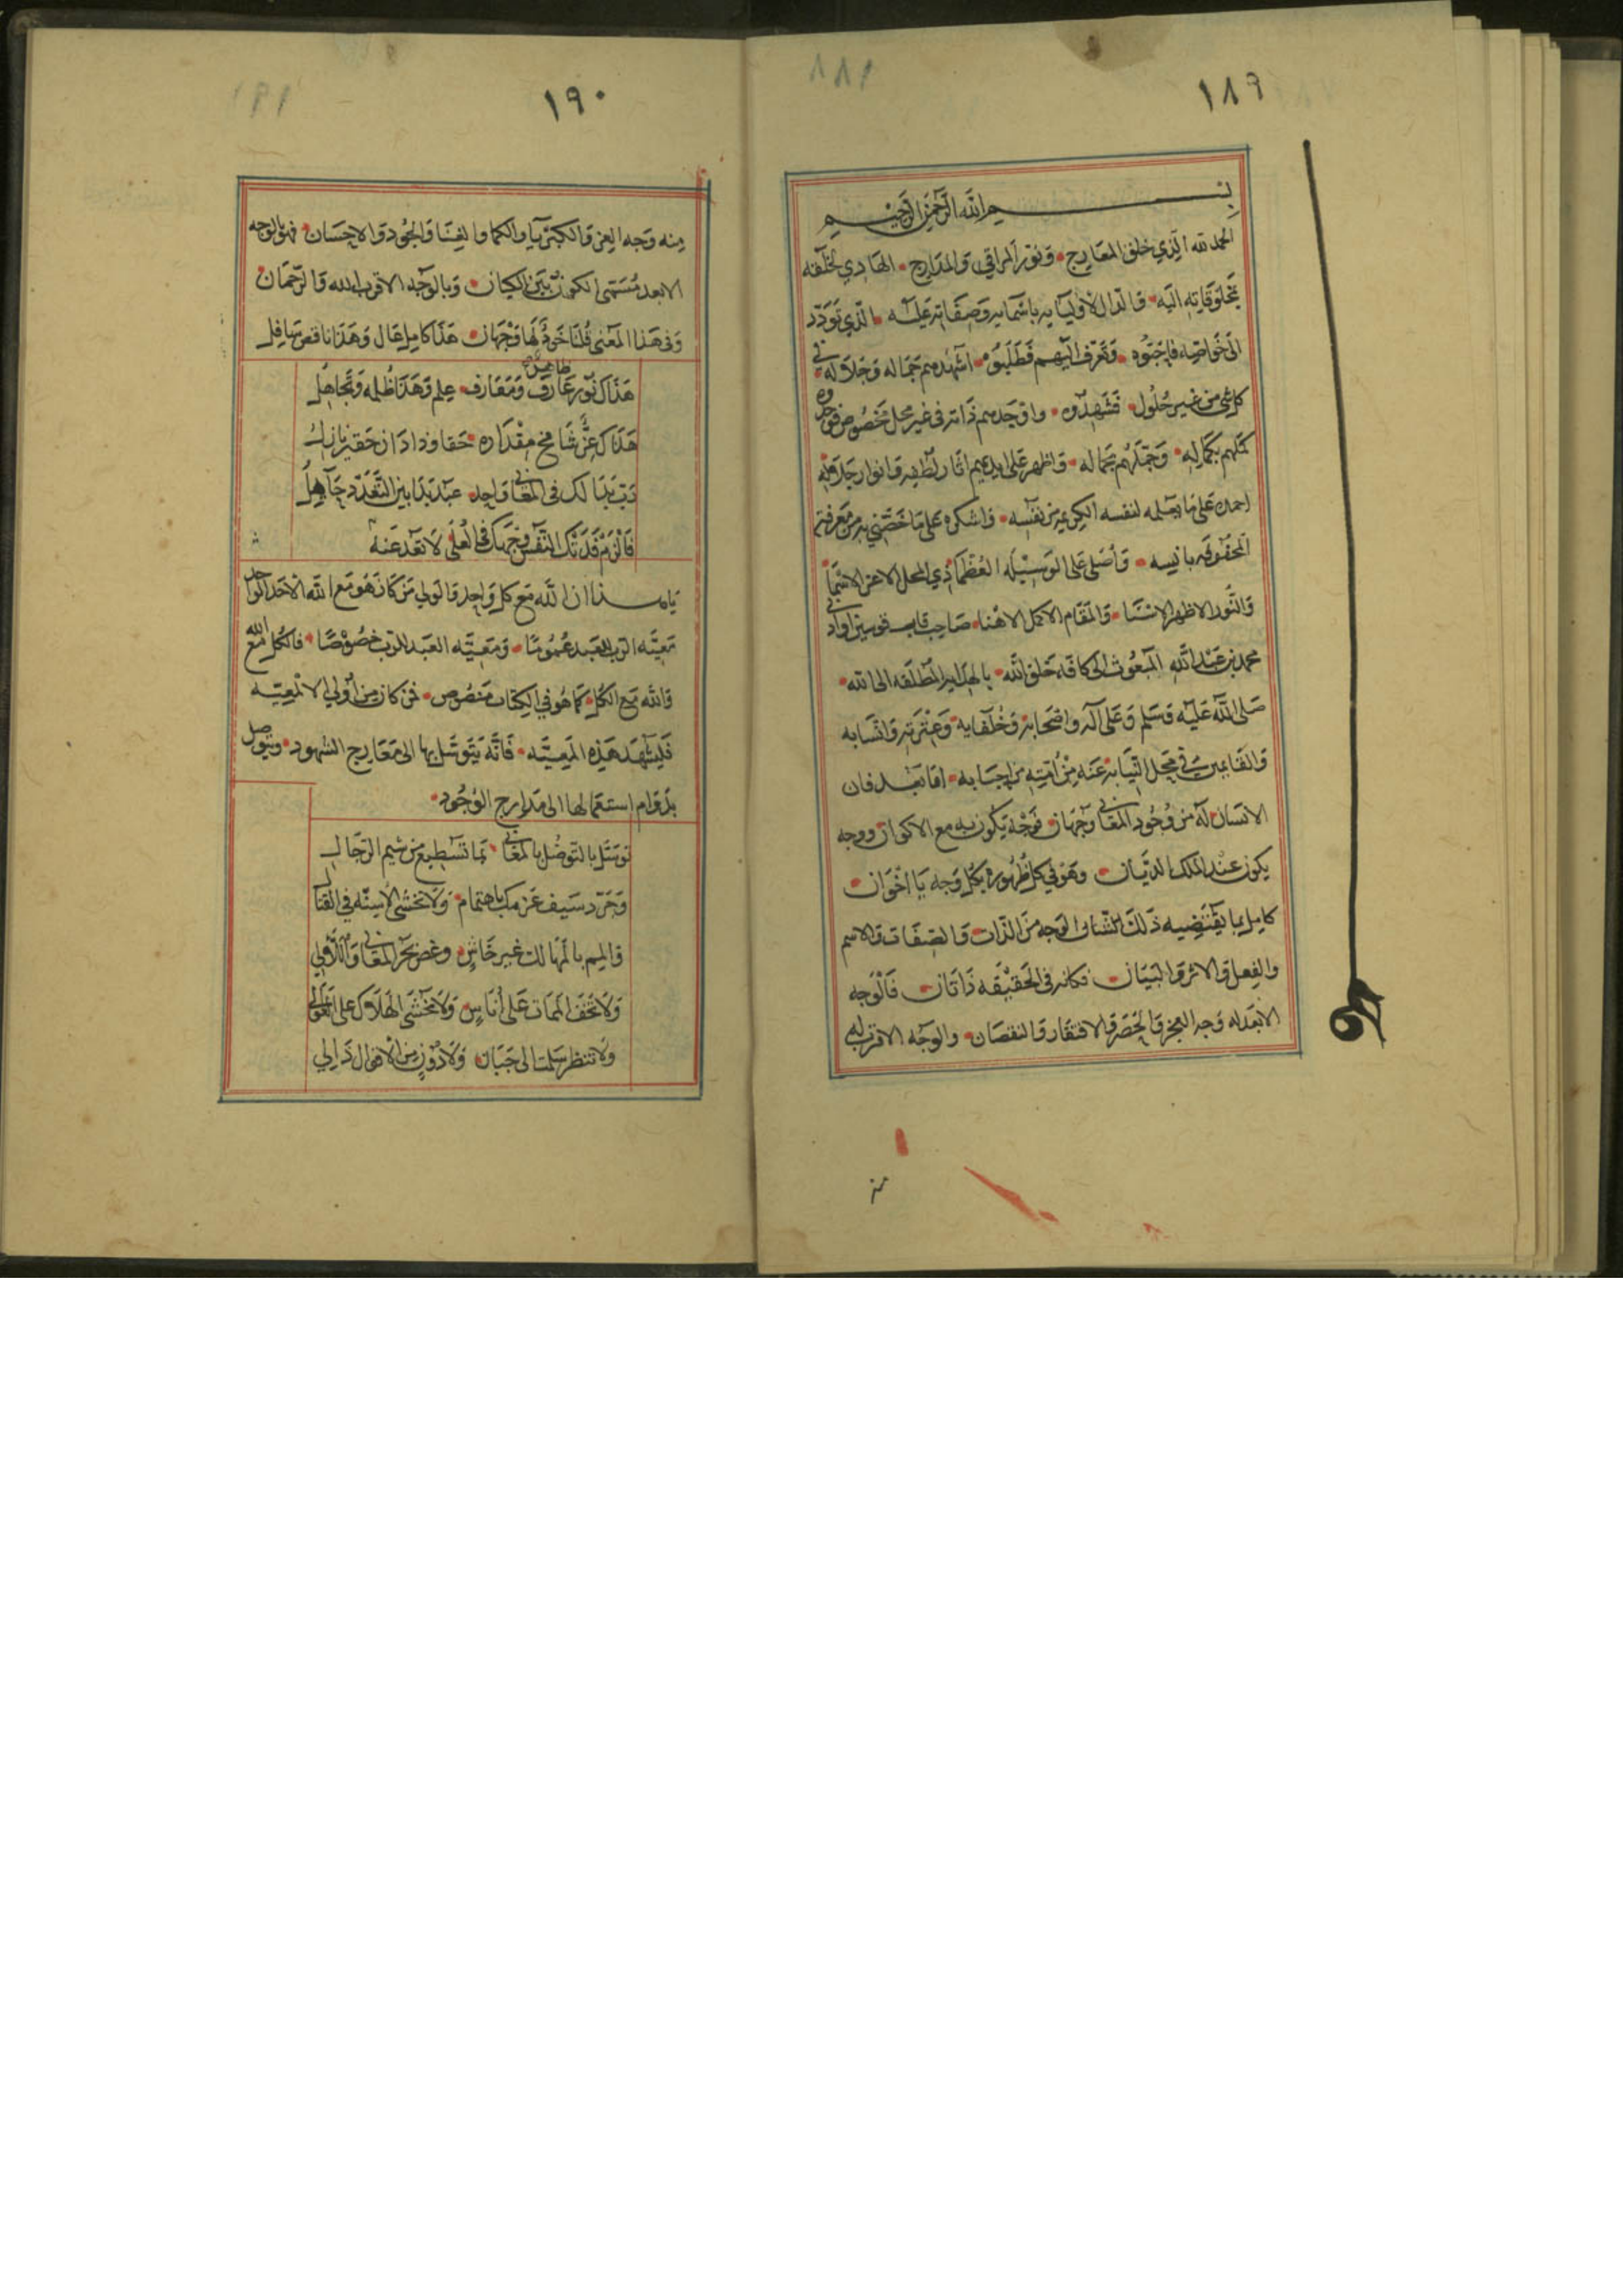 ١٨٩
بسم الله الرحمن الرحيم
الحمد لله الذي خلق المعارج وفوز المراقي والمدارج الهادي لخلقه
بمخلوقاته اليه والدال لاوليايه باسمايه وصفاته عليه الذي تودد
الى خواصه فاحبوه وتعرف اليهم فطلبوه اشهدهم جماله وجلاله في
كل شئ من غير حلول فشهدوه واوجدهم ذاته في غير محل مخصوص فوجدوه
كملهم بكماله وجملهم بجماله واظهر على ايديهم اثار لطفه وانوار جلاله
احمده على ما يعلمه لنفسه الكريمه من نفسه واشكره على ما خصني به من معرفته
المحفوفه بانسه واصلي على الوسيله العظما ذي المحل الاعز الاسما
والنور الاظهر الاسنا والمقام الاكمل الاهنا صاحب قاب قوسين او ادنى
محمد بن عبد الله المبعوث الى كافة خلق الله بالهدايه المطلقه الى الله
صلى الله عليه وسلم وعلى اله واصحابه وخلفايه وعترته وانسابه
والقايمين في محل النيابه عنه من امته من احبابه اما بعد فان
الانسان له من وجود المعاني وجهان فوجه يكون به مع الاكوان ووجه
يكون عند الملك الديان وهو في كل ظهوره بكل وجه يا اخوان
كامل بما يقتضيه ذلك الشان الوجه من الذات والصفات والاسم
والفعل والاثر والبيان فكانه في الحقيقه ذاتان فالوجه
الابعد له وجه العجز والحصر والافتقار والنقصان والوجه الاقرب له
١٩٠
منه وجه العز والكبريا والكمال والغنا والجود والاحسان فهو بالوجه
الابعد مسمى الكون بين الكيان وبالوجه الاقرب الله والرحمان
وفي هذا المعنى قلنا خود لها وجهان هذا كامل عال وهذا ناقص سافل
هذاك نور عارف ومعارف علم وهذا ظلمه وتجاهل
هذاك عز شامخ مقداره حقا وذا دان حقير نازل
رب بدا لك في المعاني واحد عبد بدا بين التعدد جاهل
فالزم فدتك النفس وجهك في العلى لا تعد عنه
يا هذا ان الله مع كل واحد والولي من كان هو مع الله الاحد الواحد
معية الرب للعبد عموما ومعية العبد للرب خصوصا فالكل مع الله
والله مع الكل كما هو في الكتاب منصوص فمن كان من اولي الالمعيه
فليشهد هذه المعيه فانه يتوسل بها الى معارج الشهود ويتوصل
بدوام استعمالها الى مدارج الوجود
توسل بالتوصل بالمعاني بما تسطيع من شيم الرجال
وجرد سيف عزمك باهتمام ولا تخشى الاسنه في القتال
والمم بالمهالك غير خاش وغص بحر المعاني واللآلي
ولا تخف الممات على اناس ولا تخشى الهلاك على العوالي
ولا تنظر سلمت الى جبان ولا دون من الاهوال ذالي